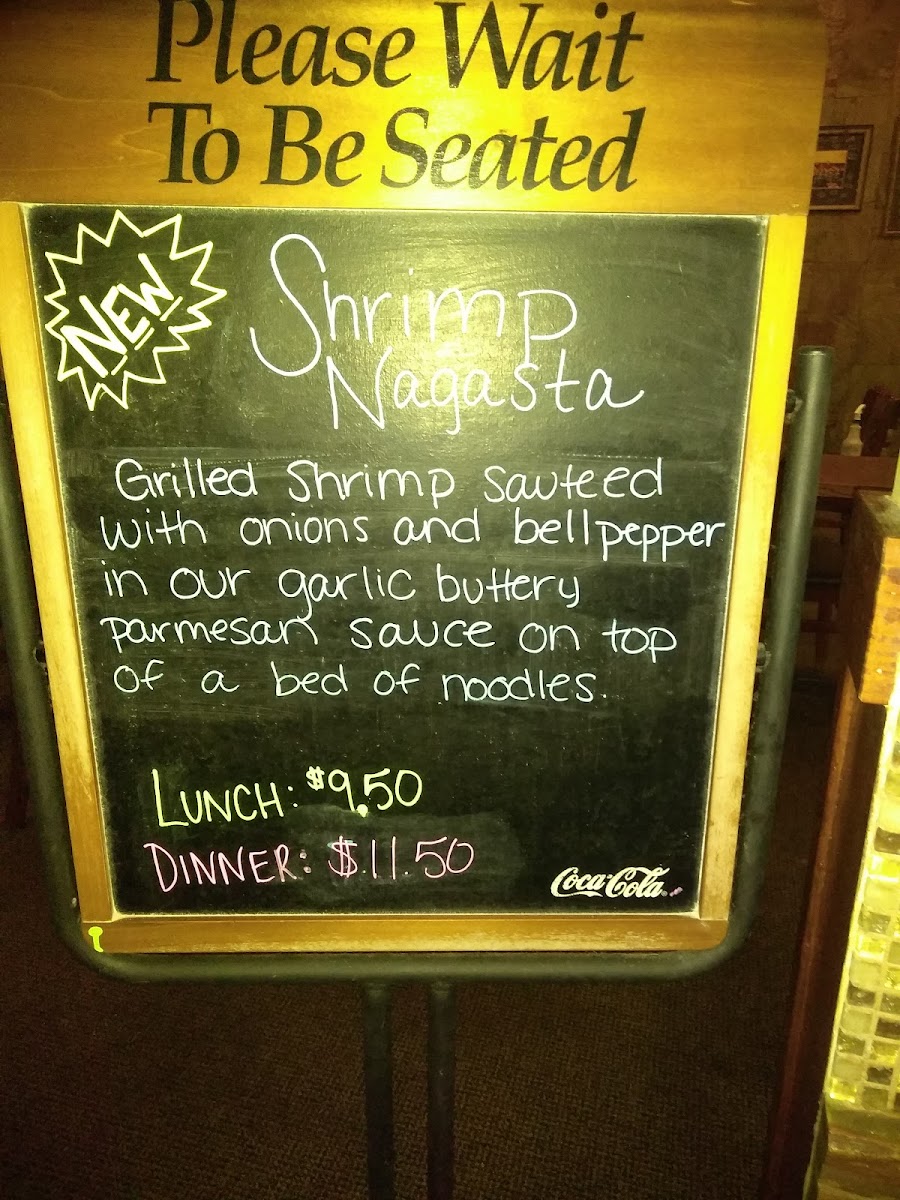 Please Wait
To Be Seated
NEW
Shrimp
Nagasta
Grilled Shrimp sauteed
with onions and bell pepper
in our garlic buttery
parmesan sauce on top
of a bed of noodles.
LUNCH: $9.50
DINNER: $11.50
Coca-Cola